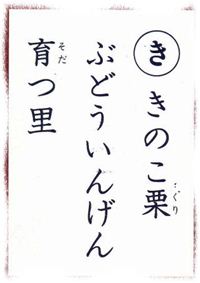 き きのこ栗
ぐり
ぶどういんげん
育つ里
そだ